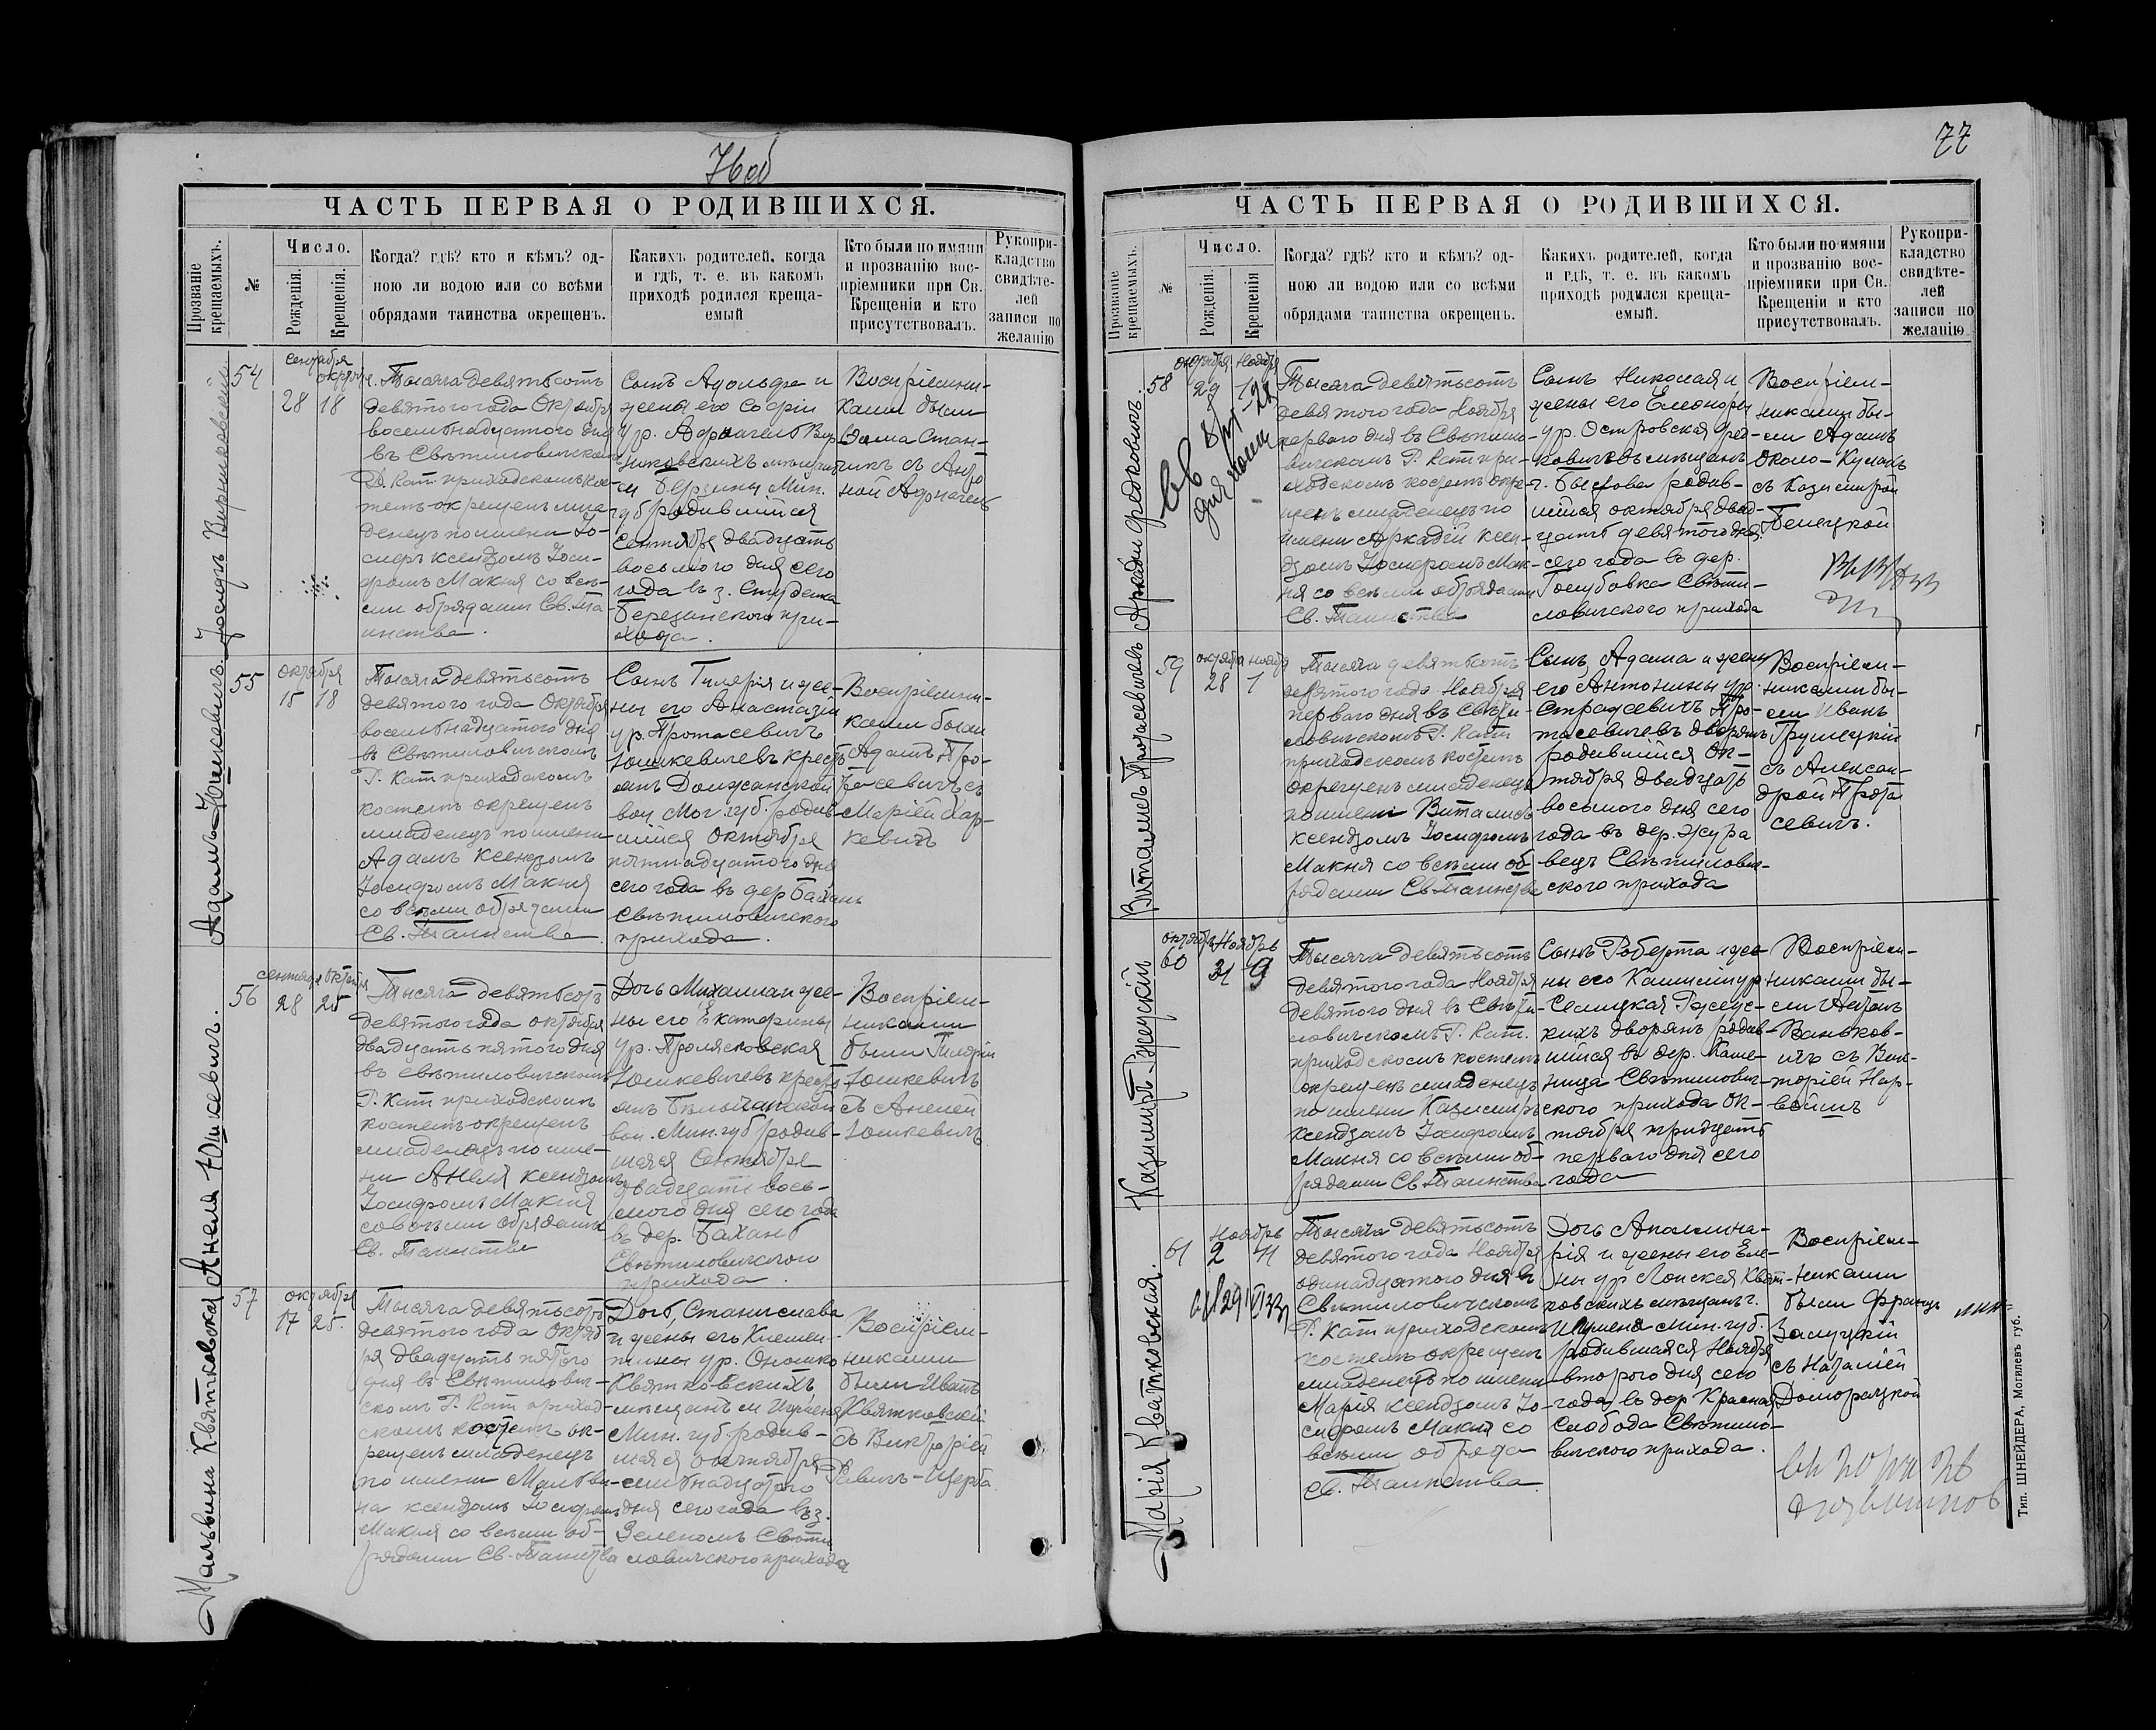 76об
ЧАСТЬ ПЕРВАЯ О РОДИВШИХСЯ.
Прозваніе крещаемыхъ.
№
Число.
Рожденія.
Крещенія.
Когда? гдѣ? кто и кѣмъ? од-
ною ли водою или со всѣми
обрядами таинства окрещенъ.
Какихъ родителей, когда
и гдѣ, т. е. въ какомъ
приходѣ родился креща-
емый
Кто были по имяни
и прозванію вос-
пріемники при Св.
Крещеніи и кто
присутствовалъ.
Рукопри-
кладство
свидѣте-
лей
записи по
желанію
Іосифъ
54
сентября
28 18
Тысяча девятьсотъ
девятого года Октября
восемьнадцатого дня
въ Свѣтиловичскомъ
Р. Кат приходскомъ кос-
телѣ окрещенъ мла-
денецъ по имени Іо-
сифъ ксендзомъ Іоси-
фомъ Макня со всѣ-
ми обрядами Св. Та-
инства.
Сынъ Адольфа и
жены его Софіи
ур.
мѣщанъ
Мин.
губ родившійся
Сентября двадцать
восьмого дня сего
года въ з. Студенка
Березинского при-
хода.
Воспріемни-
ками были
Стан-
съ
Адамъ Юшкевичъ.
55
октября
15 18
Тысяча девятьсотъ
девятого года Октября
восемьнадцатого дня
въ Свѣтиловичскомъ
Р. Кат приходскомъ
костелѣ окрещенъ
младенецъ по имени
Адамъ ксендзомъ
Іосифомъ Макня
со всѣми обрядами
Св. Таинства.
Сынъ Гилярія и же-
ны его Анастазіи
ур. Протасевичъ
Юшкевичевъ крест-
янъ Должанской
вол Мог. губ. родив-
шійся Октября
пятнадцатого дня
сего года въ дер Бахань
Свѣтиловичского
прихода.
Воспріемни-
ками были
Адамъ Про-
тасевичъ съ
Маріей
Анеля Юшкевичъ.
56
сентября октября
28 25
Тысяча девятьсотъ
девятого года октября
двадцать пятого дня
въ свѣтиловичскомъ
Р. Кат приходскомъ
костелѣ окрещенъ
младенецъ по име-
ни Анеля ксендзомъ
Іосифомъ Макня
со всѣми обрядами
Св. Таинства
Дочь Михаила и же-
ны его Екатерины
ур. Пролясковская
Юшкевичевъ крест-
янъ
вол. Мин. губ родив-
шаяся Сентября
двадцать вось-
мого дня сего года
въ дер. Бахань
Свѣтиловичского
прихода.
Воспріем-
никами
были Гилярій
Юшкевичъ
съ Анелей
Юшкевичъ
Мальвина Квятковская
57
октября
17 25.
Тысяча девятьсотъ
девятого года Октяб-
ря двадцать пятого
дня въ Свѣтилович-
скомъ Р. Кат приход-
скомъ костелѣ ок-
рещенъ младенецъ
по имени Мальви-
на ксендзомъ Іосифомъ
Макня со всѣми об-
рядами Св. Таинства
Дочь Станислава
и жены его Клемен-
тины ур. Оношко
Квятковскихъ
мѣщанъ м Игуменя
Мин. губ. родив-
шаяся октября
семьнадцатого
дня сего года въ з.
Зеленомъ Свѣти-
ловичского прихода
Воспріем-
никами
были Иванъ
Квятковскій
съ Викторіей
Равичъ-Щерба.
77
ЧАСТЬ ПЕРВАЯ О РОДИВШИХСЯ.
Прозваніе крещаемыхъ.
№
Число.
Рожденія.
Крещенія
Когда? гдѣ? кто и кѣмъ? од-
ною ли водою или со всѣми
обрядами таинства окрещенъ.
Какихъ родителей, когда
и гдѣ, т. е. въ какомъ
приходѣ родился креща-
емый.
Кто были по имяни
и прозванію вос-
пріемники при Св.
Крещеніи и кто
присутствовалъ.
Рукопри-
кладство
свидѣте-
лей
записи по
желанію
Аркадій Фредковичъ.
58
октября Ноября
29 1
Тысяча девятьсотъ
девятого года Ноября
перваго дня въ Свѣтило-
вичскомъ Р. Кат при-
ходскомъ костелѣ окре-
щенъ младенецъ по
имени Аркадій ксен-
дзомъ Іосифомъ Мак-
ня со всѣми обрядами
Св. Таинства
Сынъ Николая и
жены его Елеоноры
ур. Островская Фред-
ковичъ мѣщанъ
г. Быхова родив-
шійся октября двад-
цать девятого дня
сего года въ дер.
Голубовка Свѣти-
ловичского прихода
Воспріем-
никами бы-
ли Адамъ
Около-Кулакъ
съ Казимірой
Бенецкой
Виталисъ Протасевичъ
59
октября ноября
28 1
Тысяча девятьсотъ
девятого года Ноября
перваго дня въ Свѣти-
ловичскомъ Р. Кат
приходскомъ костелѣ
окрещенъ младенецъ
по имени Виталисъ
ксендзомъ Іосифомъ
Макня со всѣми об-
рядами Св Таинства
Сынъ Адама и жены
его Антонины ур.
Про-
тасевичевъ дворянъ
родившійся Ок-
тября двадцать
восьмого дня сего
года въ дер. Жура
вецъ Свѣтилович-
ского прихода
Воспріем-
никами бы-
ли Иванъ
Грушецкій
съ Алексан-
дрой Прота
севичъ.
Казиміръ
60
октября Ноябрь
31 9
Тысяча девятьсотъ
девятого года Ноября
девятого дня въ Свѣти-
ловичскомъ Р. Кат.
приходскомъ костелѣ
окрещенъ младенецъ
по имени Казиміръ
ксендзомъ Іосифомъ
Макня со всѣми об-
рядами Св Таинства
Сынъ Роберта и же-
ны его Камиліи ур
Селицкая
кихъ дворянъ родив-
шійся въ дер. Каме-
ница Свѣтилович-
ского прихода Ок-
тября тридцать
перваго дня сего
года
Воспріем-
никами бы-
ли Антонъ
Ваньков-
ичъ съ Вик-
торіей Нар-
войшъ
Марія Кватковская.
61
Ноябрь
2 11
Тысяча девятьсотъ
девятого года Ноября
одинадцатого дня въ
Свѣтиловичскомъ
Р. Кат приходскомъ
костелѣ окрещенъ
младенецъ по имени
Марія ксендзомъ Іо-
сифомъ Макня со
всѣми обряда
Св. Таинства.
Дочь Аполлина-
рія и жены его Еле-
ны ур Лонская Квят-
ковскихъ мѣщанъ г.
Игуменя Мин. губ.
родившаяся Ноября
второго дня сего
года въ дер Красная
Слобода Свѣтило-
вичского прихода.
Воспріем-
никами
были Францъ
Залуцкій
съ Наталіей
Доморацкой
Тип. ШНЕЙДЕРА, Могилевъ губ.